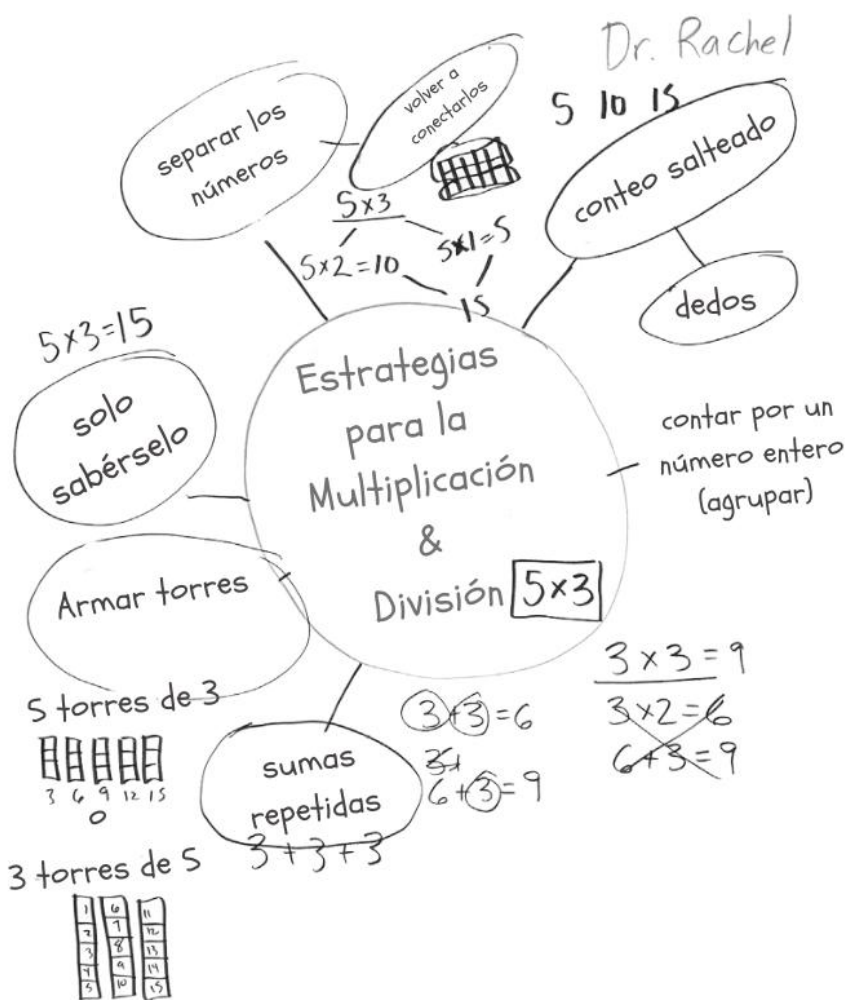 Dr. Rachel
separar los
números
volver a
conectarlos
5 10 15
conteo salteado
dedos
5x3
5x2=10
5x1=5
15
5x3=15
solo
sabérselo
Estrategias
para la
Multiplicación
&
División 5x3
contar por un
número entero
(agrupar)
Armar torres
5 torres de 3
3 6 9 12 15
o
3 torres de 5
1 6 11
2 7 12
3 8 13
4 9 14
5 10 15
sumas
repetidas
3+3+3
3+3=6
6+3=9
3x3=9
3x2=6
6+3=9